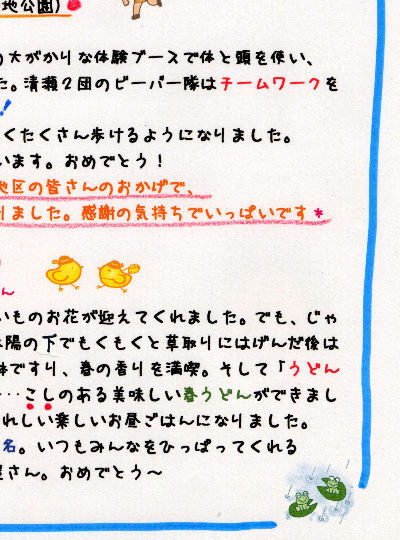 地公園)
大がかりな体験ブースで体と頭を使い、
た。清瀬2団のビーバー隊はチームワークを
!
くたくさん歩けるようになりました。
います。おめでとう!
地区の皆さんのおかげで、
りました。感謝の気持ちでいっぱいです*
ん
いものお花が迎えてくれました。でも、じゃ
陽の下でもくもくと草取りにはげんだ後は
ですり、春の香りを満喫。そして「うどん
‥こしのある美味しい春うどんができまし
れしい楽しいお昼ごはんになりました。
名。いつもみんなをひっぱってくれる
屋さん。おめでとう〜